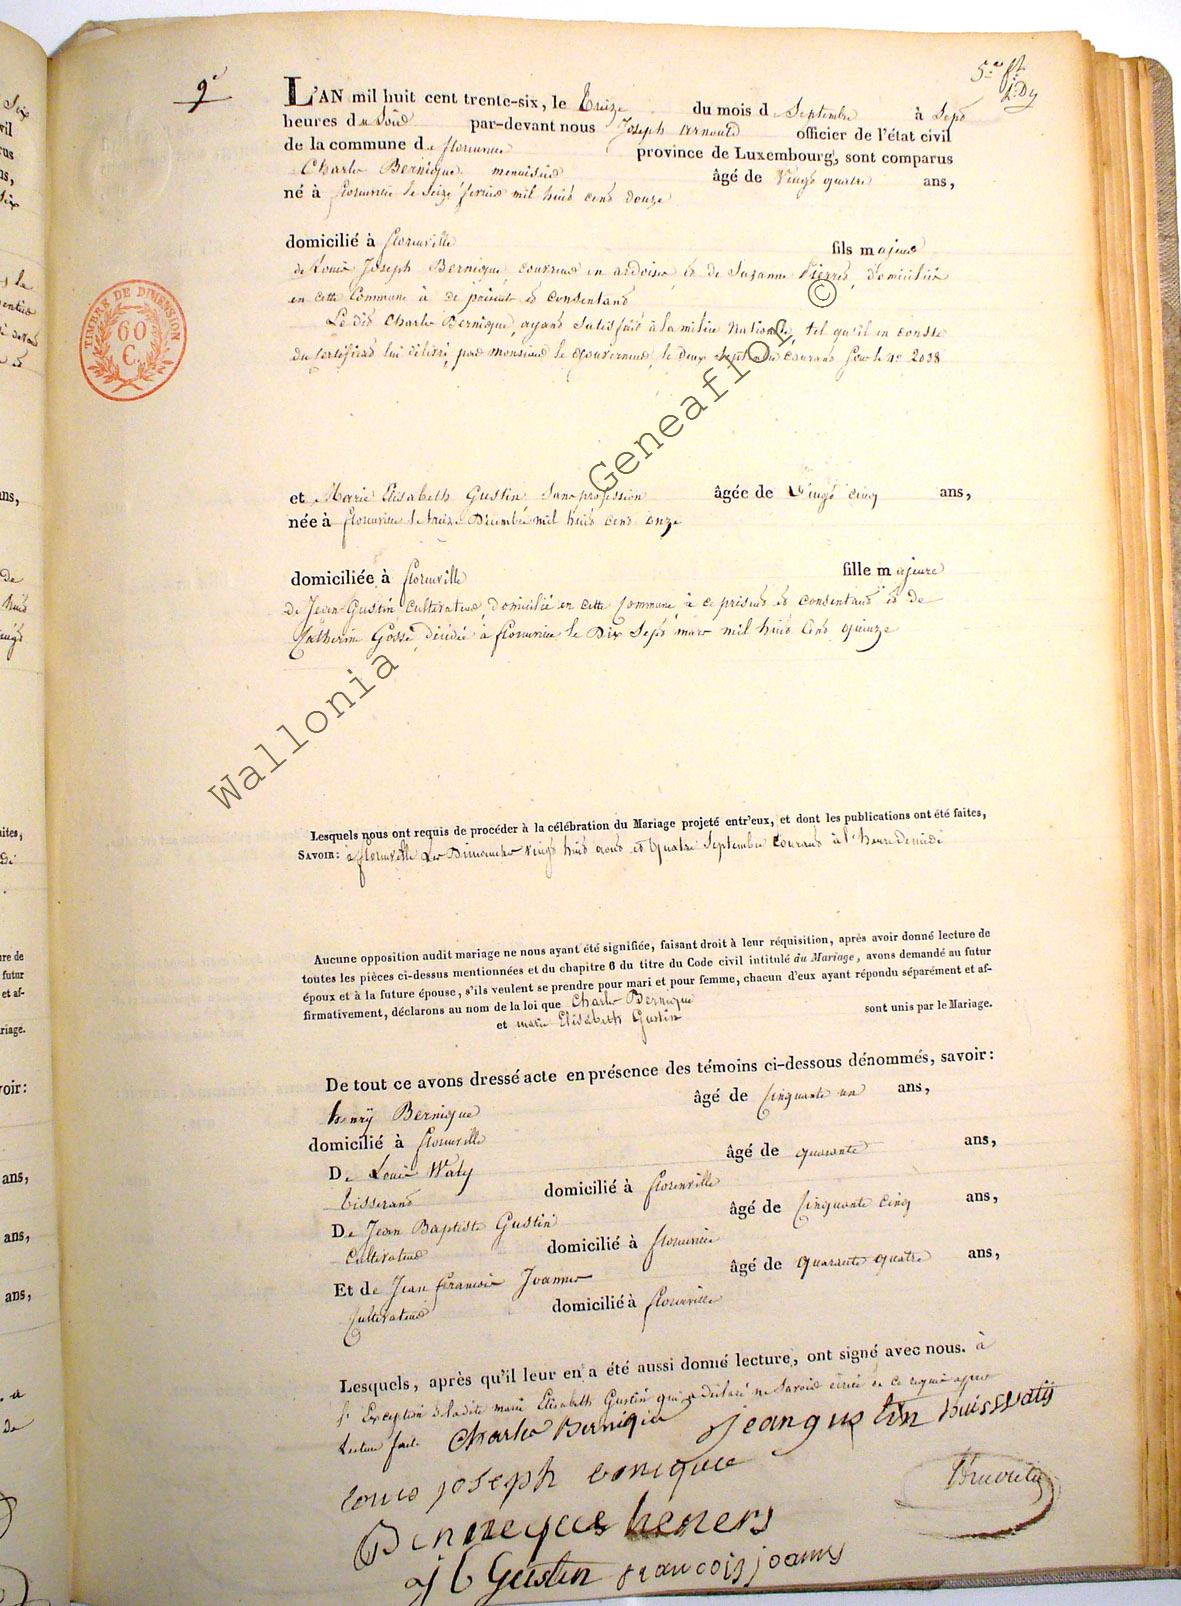 9e
L'AN mil huit cent trente-six, le treize du mois de Septembre à Sept
heures du Soir par-devant nous Joseph Arnould officier de l'état civil
de la commune de florenville province de Luxembourg, sont comparus
Charles Bernique menuisier âgé de Vingt quatre ans,
né à florenville le Seize fevrier mil huit cent douze
domicilié à florenville fils majeur
de Louis Joseph Bernique, couvreur en ardoises, et de Suzanne Pierret, domiciliés
en cette Commune à ce présents et consentants
Le dit Charles Bernique, ayant Satisfait à la milice Nationale, tel qu'il en conste
du certificat lui délivré, par monsieur le Gouverneur, le deux Septembre courant sous le no 2038
et Marie Elisabeth Gustin Sans profession âgée de Vingt cinq ans,
née à florenville le treize Decembre mil huit cent onze
domiciliée à florenville fille majeure
de Jean Gustin, cultivateur, domicilié en cette Commune, à ce présent et consentant et de
Catherine Gosse, décédée à florenville le Dix Sept mars mil huit cent quinze
Lesquels nous ont requis de procéder à la célébration du Mariage projeté entr'eux, et dont les publications ont été faites,
SAVOIR: à florenville les Dimanches vingt huit aout et quatre Septembre courant à l'heure de midi
Aucune opposition audit mariage ne nous ayant été signifiée, faisant droit à leur réquisition, après avoir donné lecture de
toutes les pièces ci-dessus mentionnées et du chapitre 6 du titre du Code civil intitulé du Mariage, avons demandé au futur
époux et à la future épouse, s'ils veulent se prendre pour mari et pour femme, chacun d'eux ayant répondu séparément et af-
firmativement, déclarons au nom de la loi que Charles Bernique
et marie Elisabeth Gustin sont unis par le Mariage.
De tout ce avons dressé acte en présence des témoins ci-dessous dénommés, savoir:
henrÿ Bernique âgé de Cinquante un ans,
domicilié à florenville
De Louis Waty âgé de quarante ans,
tisserand domicilié à florenville
De Jean Baptiste Gustin âgé de Cinquante cinq ans,
Cultivateur domicilié à florenville
Et de Jean francois Joannes âgé de quarante quatre ans,
Cultivateur domicilié à florenville
Lesquels, après qu'il leur en a été aussi donné lecture, ont signé avec nous. à
l'Exception de ladite marie Elisabeth Gustin qui a déclaré ne Savoir écrire de ce requis apres
Lecture faite Charles Bernique jean gustin
louis joseph
j b Gustin francois joannes
TIMBRE DE DIMENSION
60
C.
Wallonia Geneaflor ©